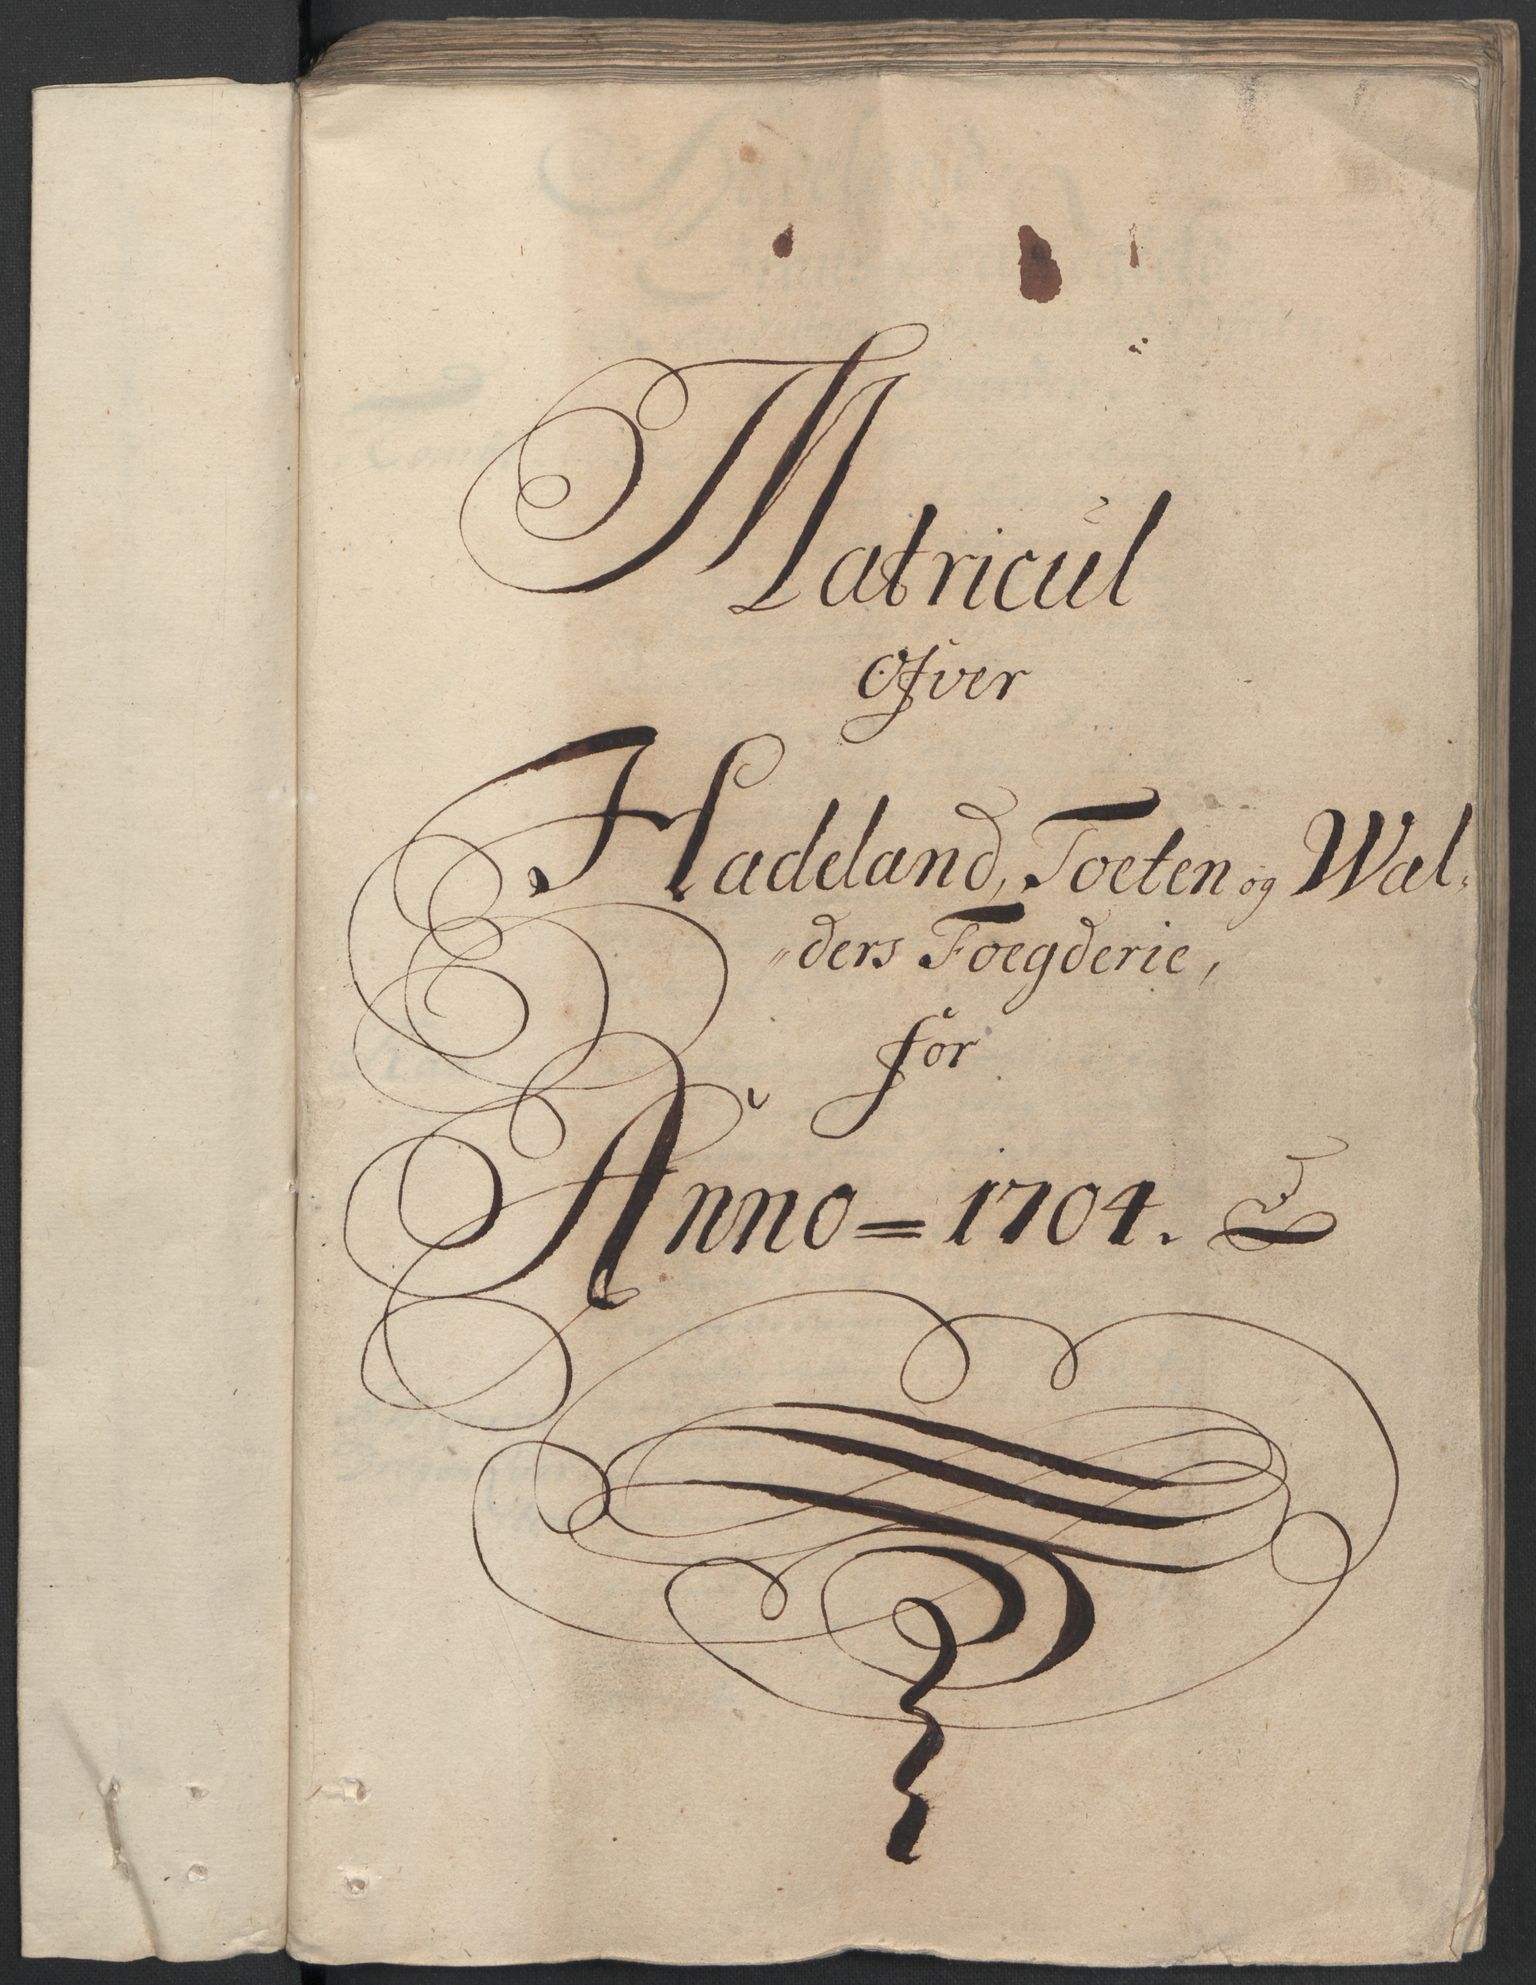 Matricul
Ofver
Hadeland, Toeten og Wal-
"ders Foegderie,
for
Anno = 1704.